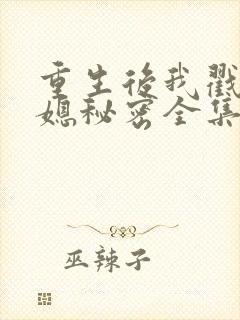 重生后我戳
媳秘密全集
巫辣子